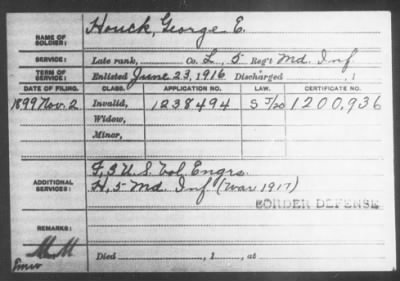 NAME OF SOLDIER: Houck, George E.
SERVICE: Late rank, Co. L, 5 Reg't Md. Inf
TERM OF SERVICE: Enlisted June 23, 1916 Discharged , 1
DATE OF FILING. CLASS. APPLICATION NO. LAW. CERTIFICATE NO.
1899 Nov. 2 Invalid, 1238494 1200,936
Widow,
Minor,
F, 3 U.S. Vol. Engrs.
ADDITIONAL SERVICES: H, 5 Md. Inf (War 1917)
BORDER DEFENSE
REMARKS:
Died , 1 , at